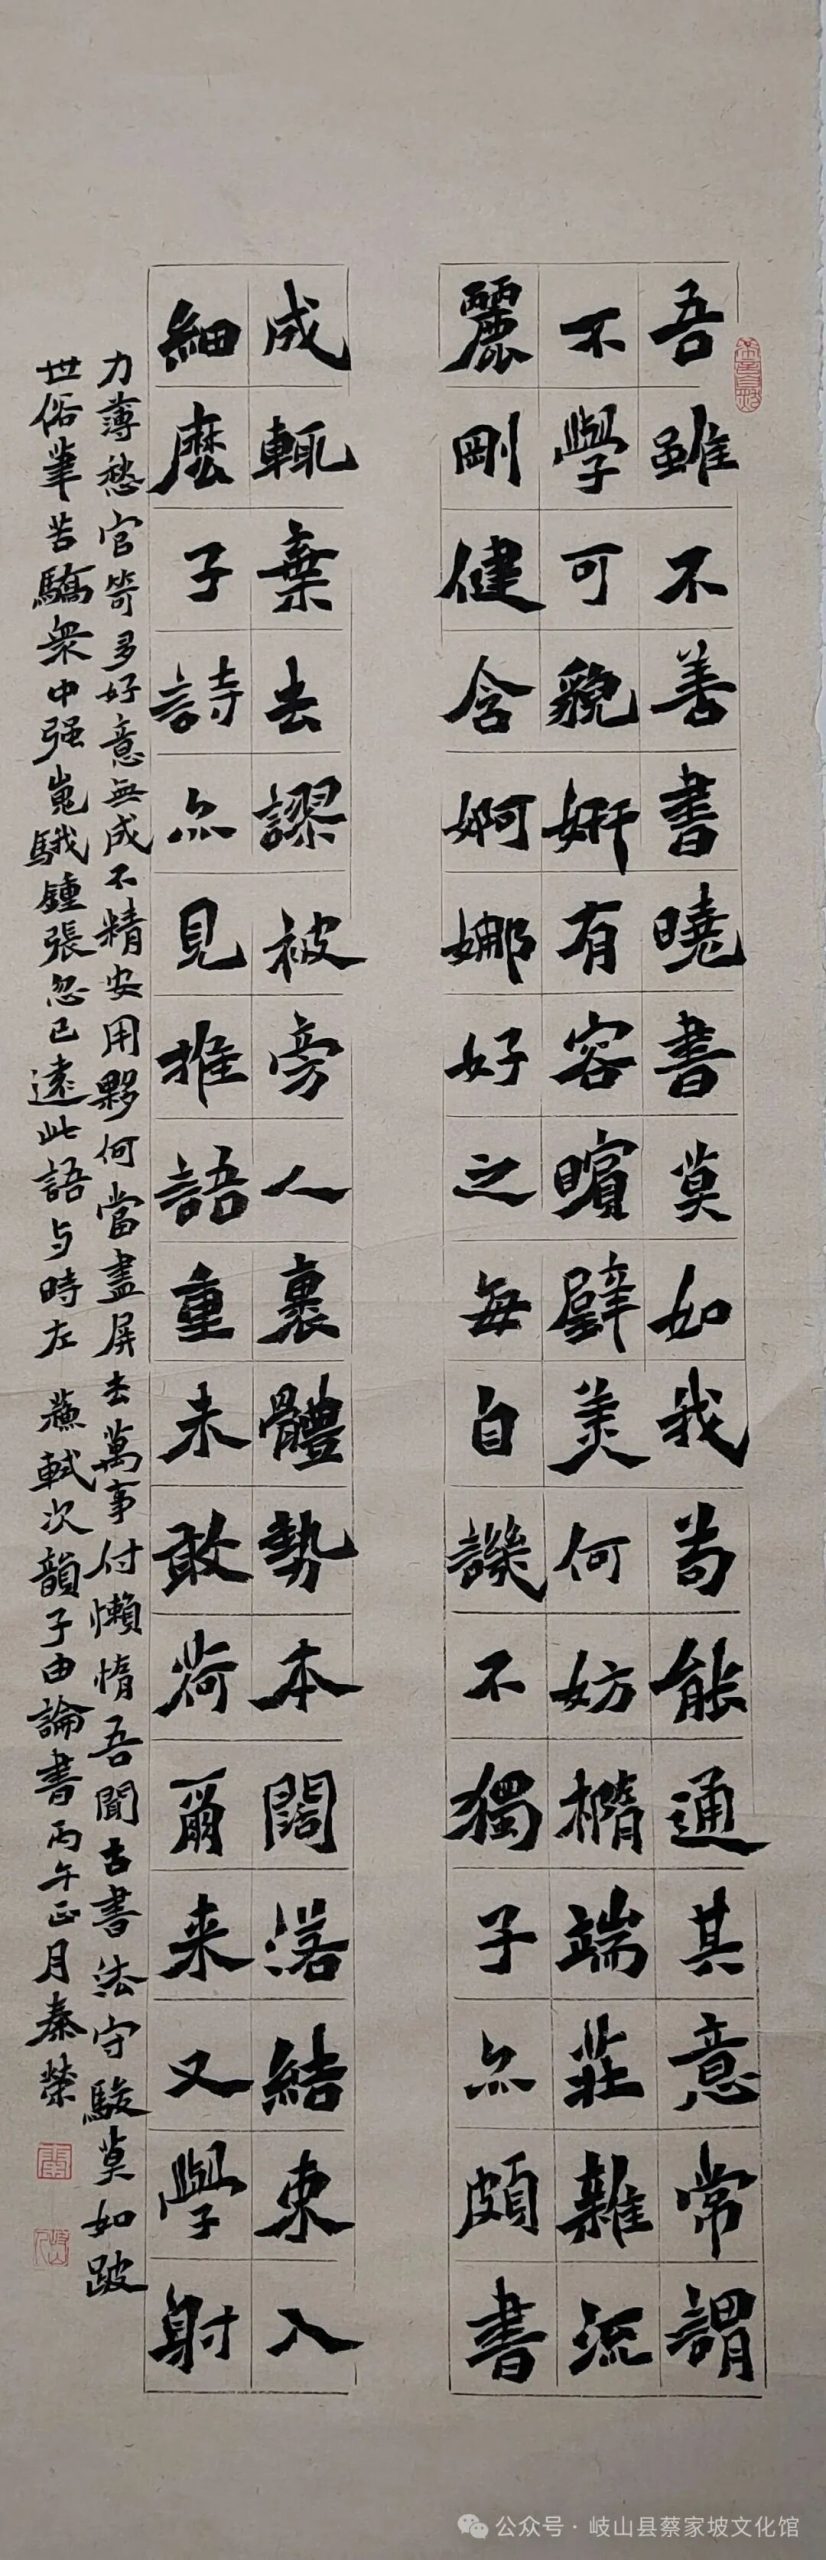 吾雖不善書曉書莫如我苟能通其意常謂
不學可貌妍有容矉璧美何妨橢端莊雜流
麗剛健含婀娜好之每自譏不獨子亦頗書
成輒棄去謬被旁人裹體勢本闊落結束入
細麼子詩亦見推語重未敢荷爾来又學射
力薄愁官笴多好意無成不精安用夥何當盡屏去萬事付懶惰吾聞古書法守駿莫如跛
世俗筆苦驕衆中强嵬騀鍾張忽已遠此語与時左 蘇軾次韻子由論書丙午正月秦榮
公众号 · 岐山县蔡家坡文化馆